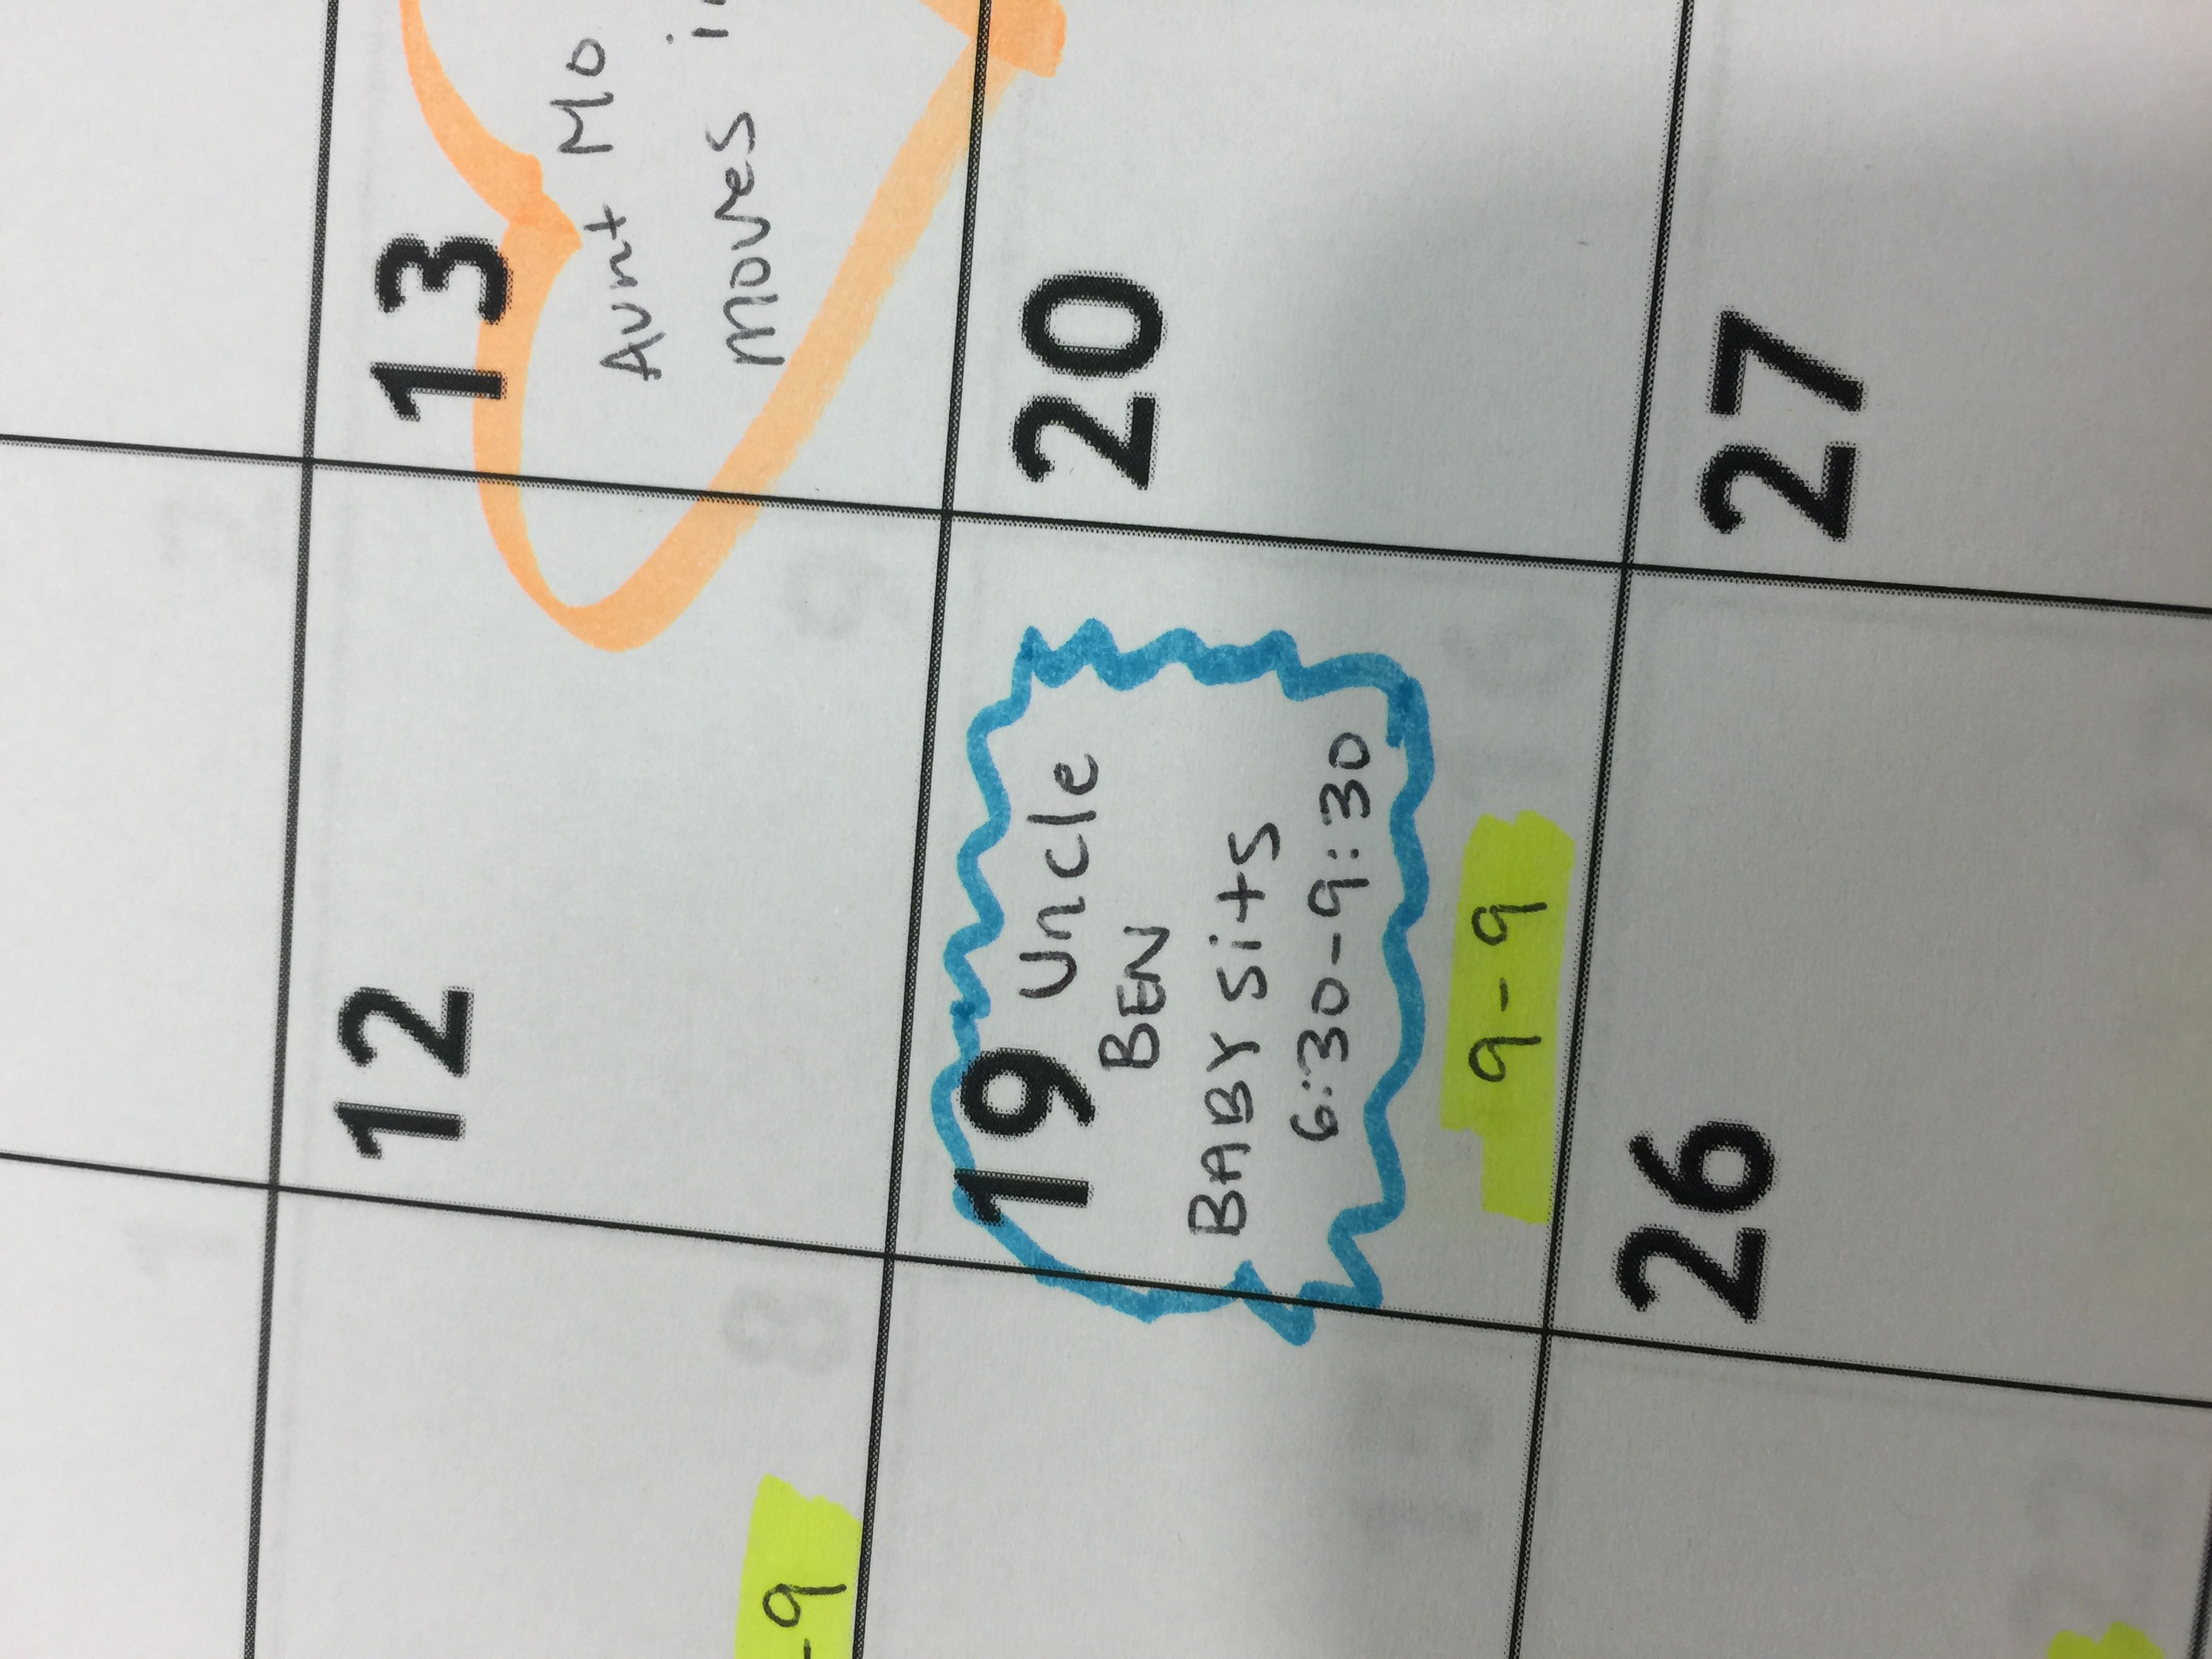 12
13
Aunt Mo
moves
-9
19 Uncle
BEN
BABY sits
6:30-9:30
9-9
20
26
27